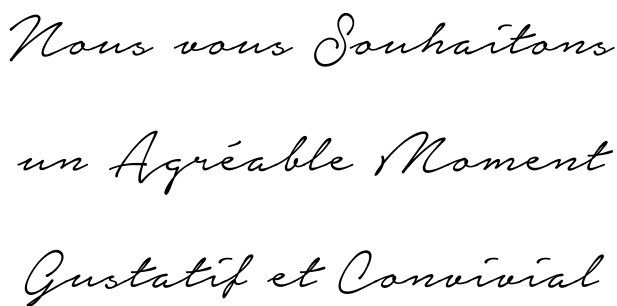 Nous vous Souhaitons
un Agréable Moment
Gustatif et Convivial